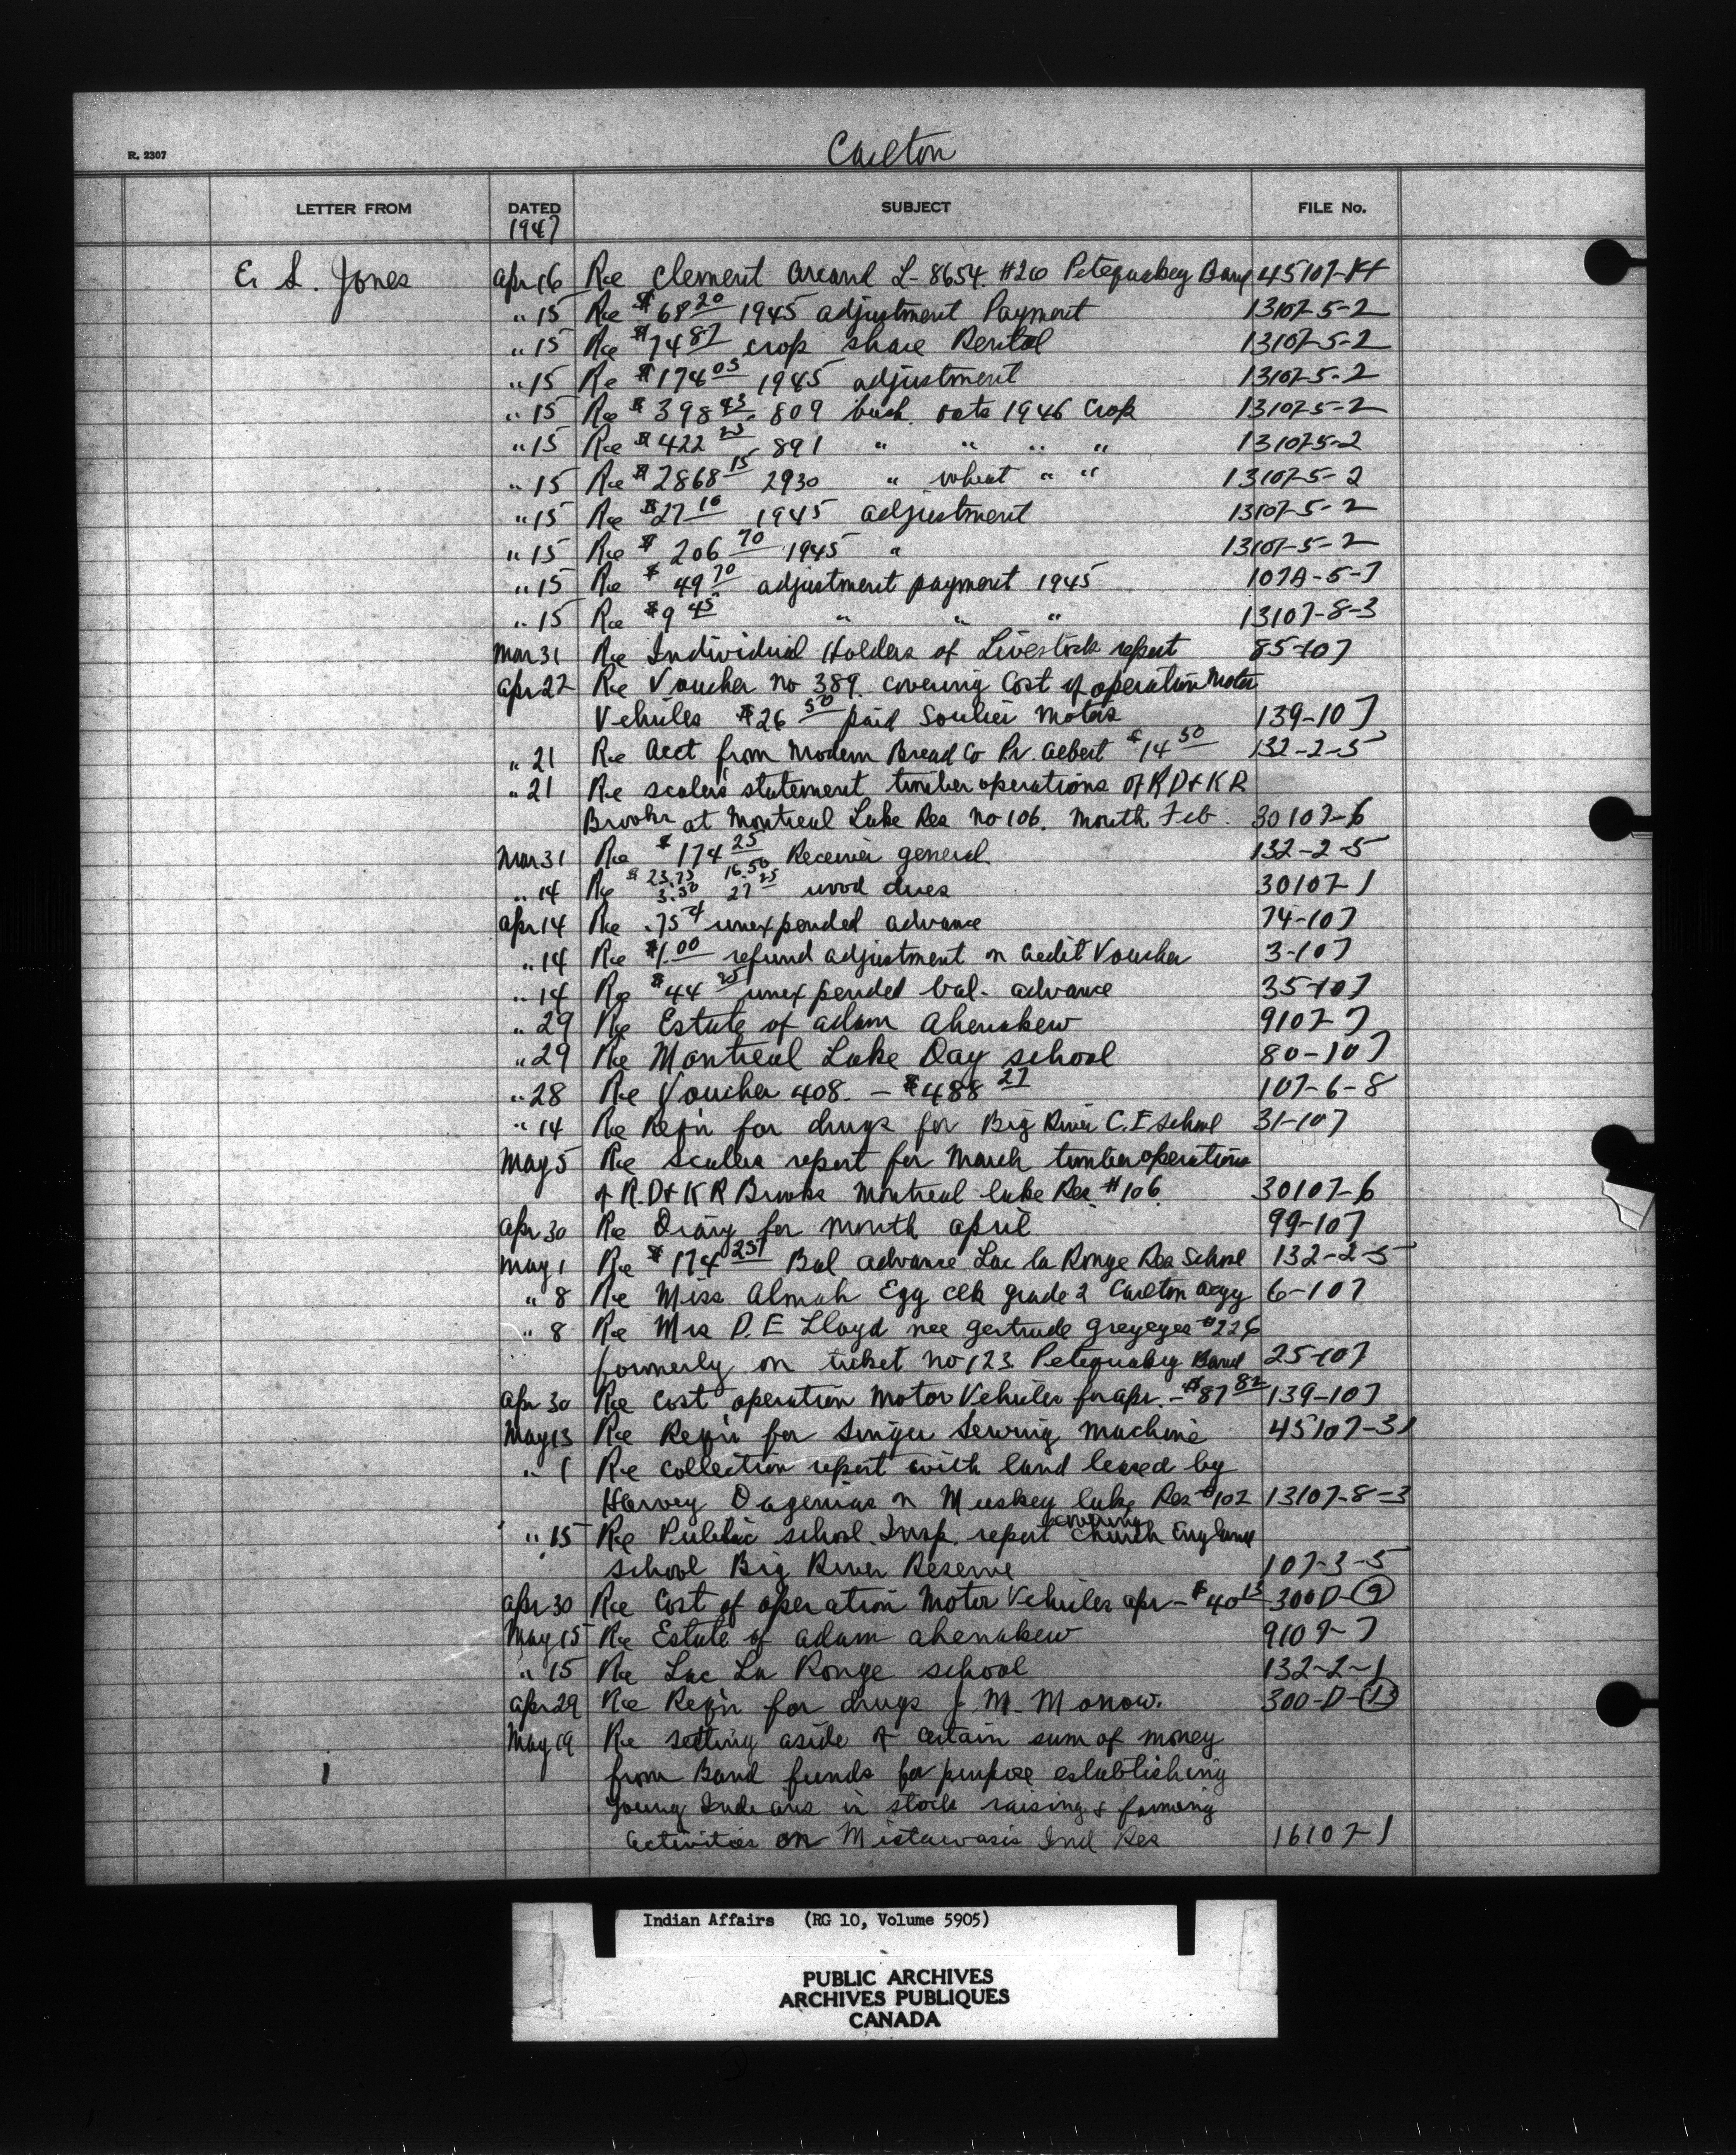 Carlton
R. 2307
LETTER FROM DATED SUBJECT FILE No.
1947
E. S. Jones Apr 16 Re Clement Arcand L-8654. #20 Petequakey Band 45107-
" 15 Re $68 20 1945 adjustment Payment 13107-5-2
" 15 Re $74 87 crop share Rental 13107-5-2
" 15 Re $174 05 1945 adjustment 13107-5-2
" 15 Re $398 43 809 bush. oats 1946 Crop 13107-5-2
" 15 Re $422 891 " " " " 13107-5-2
" 15 Re $2868 15 2930 " wheat " " 13107-5-2
" 15 Re $27 10 1945 adjustment 13107-5-2
" 15 Re $206 70 1945 " 13107-5-2
" 15 Re $49 70 adjustment payment 1945 107A-5-7
" 15 Re $9 45 " " " 13107-8-3
Mar 31 Re Individual Holders of Livestock report 85-107
Apr 22 Re Voucher no 389. covering Cost of operation Motor
Vehicles $26 50 paid Soulier Motors 139-107
" 21 Re Acct from Modern Bread Co Pr. Albert $14 50 132-2-5
" 21 Re scalers statement timber operations of R D & K R
Brooks at Montreal Lake Res No 106. Month Feb. 30107-6
Mar 31 Re $174 25 Receiver general. 132-2-5
" 14 Re $23.75 16.50 3.50 27 25 wood dues 30107-1
Apr 14 Re .75¢ unexpended advance 74-107
" 14 Re $1.00 refund adjustment on Credit Voucher 3-107
" 14 Re $44 unexpended bal. advance 35-107
" 29 Re Estate of Adam Ahenakew 9107-7
" 29 Re Montreal Lake Day school 80-107
" 28 Re Voucher 408. - $488 27 107-6-8
" 14 Re Reqn for drugs for Big River C.E School 31-107
May 5 Re Scalers report for March timber operations
of R.D & K R Brooks Montreal Lake Res #106. 30107-6
Apr 30 Re Diary for month April 99-107
May 1 Re $174 25 Bal advance Lac la Ronge Res School 132-2-5
" 8 Re Miss Almah Egg Clk grade 2 Carlton Agcy 6-107
" 8 Re Mrs D. E Lloyd nee Gertrude Greyeyes #226
formerly on ticket no 123. Petequakey Band 25-107
Apr 30 Re Cost operation Motor Vehicles for Apr. - $87 82 139-107
May 13 Re Reqn for Singer Sewing Machine 45107-31
" 1 Re Collection report with land leased by
Harvey Dagenias on Muskey Lake Res #102 13107-8-3
" 15 Re Public school Insp. report covering Church England
school Big River Reserve 107-3-5
Apr 30 Re Cost of operation Motor Vehicles Apr - $40 13 300D-(9)
May 15 Re Estate of Adam Ahenakew 9107-7
" 15 Re Lac La Ronge school 132-2-1
Apr 29 Re Reqn for drugs J. M. Monow. 300-D-(1)
May 19 Re Setting aside of Certain sum of money
from Band funds for purpose establishing
young Indians in stock raising & farming
activities on Mistawasis Ind Res 16107-1
Indian Affairs (RG 10, Volume 5905)
PUBLIC ARCHIVES
ARCHIVES PUBLIQUES
CANADA